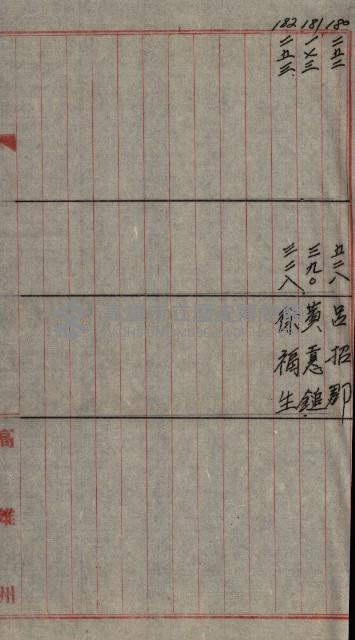 180 二五二 五二八 呂招郡
181 一七三 三九〇 黃意鎚
182 二五三 三二八 徐福生
高雄州